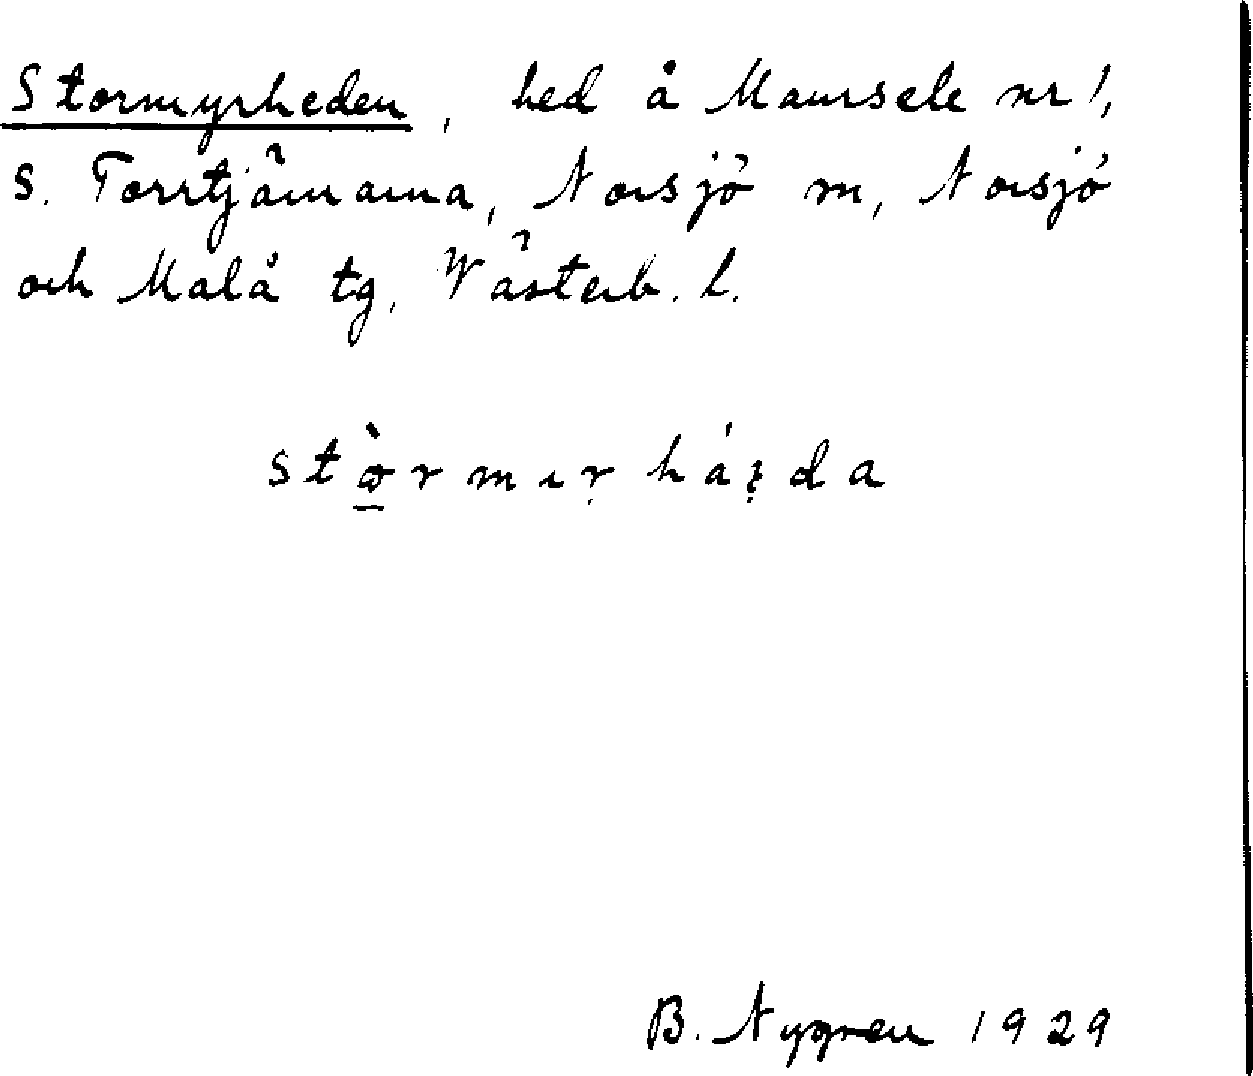 Stormyrheden, hed å Maursele nr 1,
s. Torrtjärnarna, Norsjö sn, Norsjö
och Malå tg, Västerb. l.
stòrmırháꭚda
B. Nygren 1929